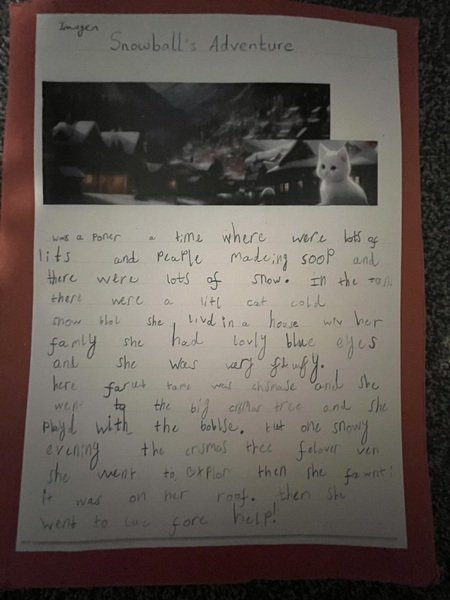 Imogen
Snowball's Adventure
was a poner a time where were lots of
lits and pearple madeing soop and
there were lots of snow. in the
there were a litl cat cold
snow blol she livd in a house wiv her
famly she had lovly blue eyes
and she was very flufy.
here farut tame was chsmase and she
went to the big crsmus tree and she
playd with the boblse. but one snowy
evening the crismas tree felover ven
she went to explor then she fawnt
it was on her roof. then she
went to luc fore help!